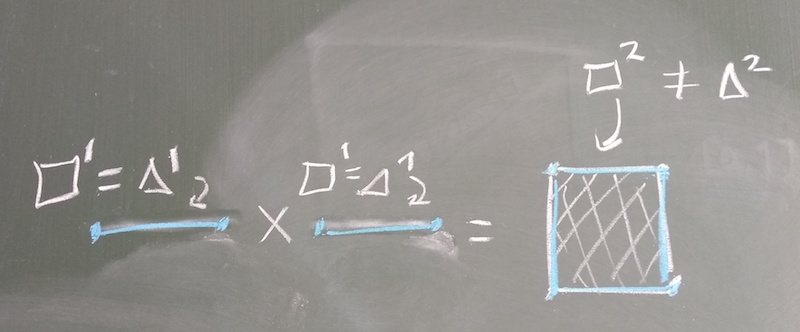 □² ≠ Δ²
□¹ = Δ¹ × □¹ = Δ¹ =